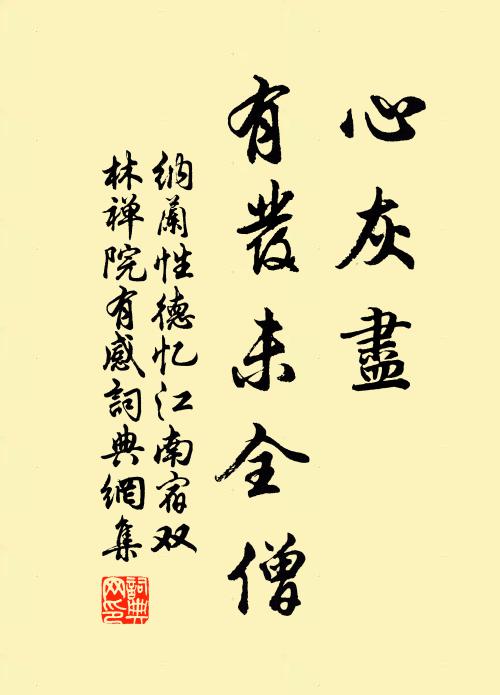 心灰盡
有發未全僧
纳蘭性德忆江南宿双
林禅院有感詞典網集
詞典網印